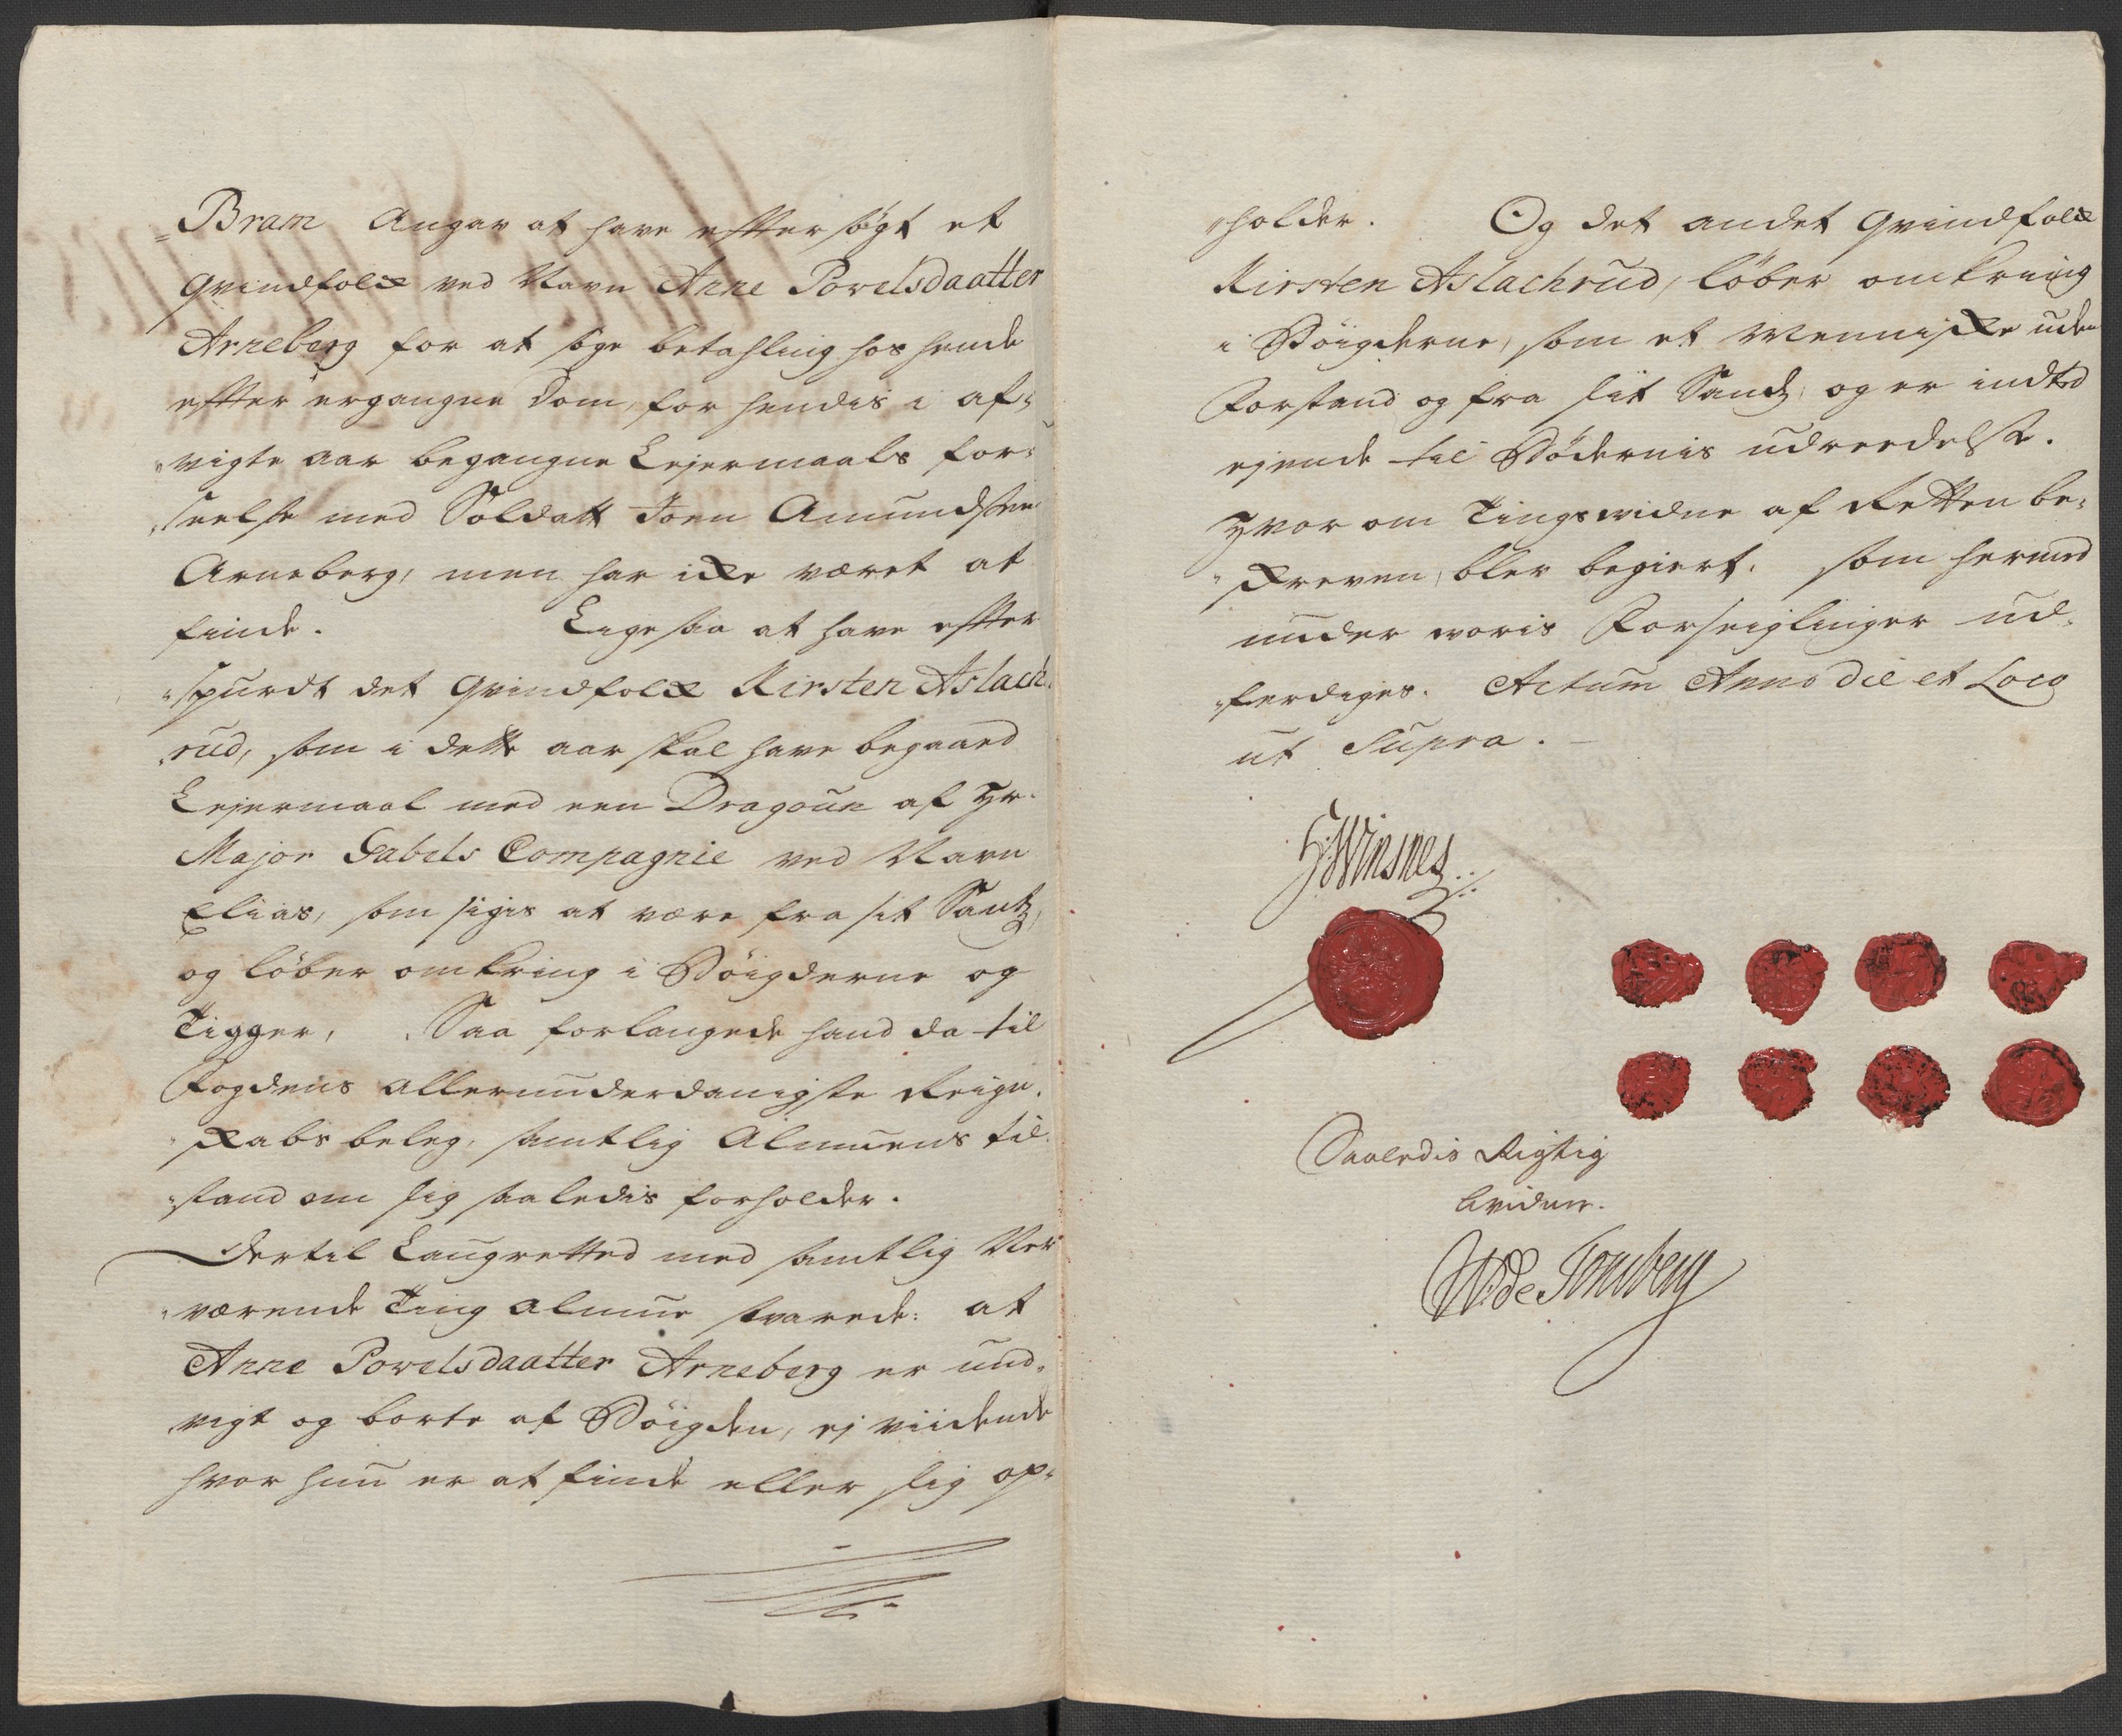 „Bram Angav at have efftersøgt et
Qvindfolk ved Navn Anne Povelsdaatter
Arneberg for at søge betahling hos hende
effter ergangne Dom, for hendis i af„
„vigte aar begangne Lejermaals for„
„seelse med Soldatt Joen Amundssen
Arneberg, men har ikke været at
finde. Ligesaa at have effter
„spurdt det Qvindfolk Kirsten Aslach„
„rud, som i dette aar skal have begaaed
Lejermaal med een Dragoun af Hr.
Major Gabels Compagnie ved Navn
Elias, som sigis at være fra sit Santz,
og løber omkring i Bøigderne og
Tigger, Saa forlangede hand da til
Fogdens allerunderdanigste Reign„
„skabs beleg, samtlig Almuens til„
„stand om sig saaledis forholder.
Dertil Laugretted med samtlig Ner„
„værende Ting almue svarede: at
Anne Povelsdaatter Arneberg er und„
„vigt og borte af Bøigden, ej viidende
hvor hun er at finde eller sig op„
„holder. Og det andet Qvindfolk
Kirsten Aslachrud, løber omkring
i Bøigderne, som et Menniske uden
Forstand og fra sit Sandz, og er indted
ejende til Bødernis udreedelse.
Hvor om Tingsvidne af Retten be„
„skreven, blev begiert, som hermed
under voris Forseiglinger ud„
„ferdiges. Actum Anno Die et Loco
ut Supra.
H Winsnes
Saaledis Rigtig
tvidner.
W de Tonsberg